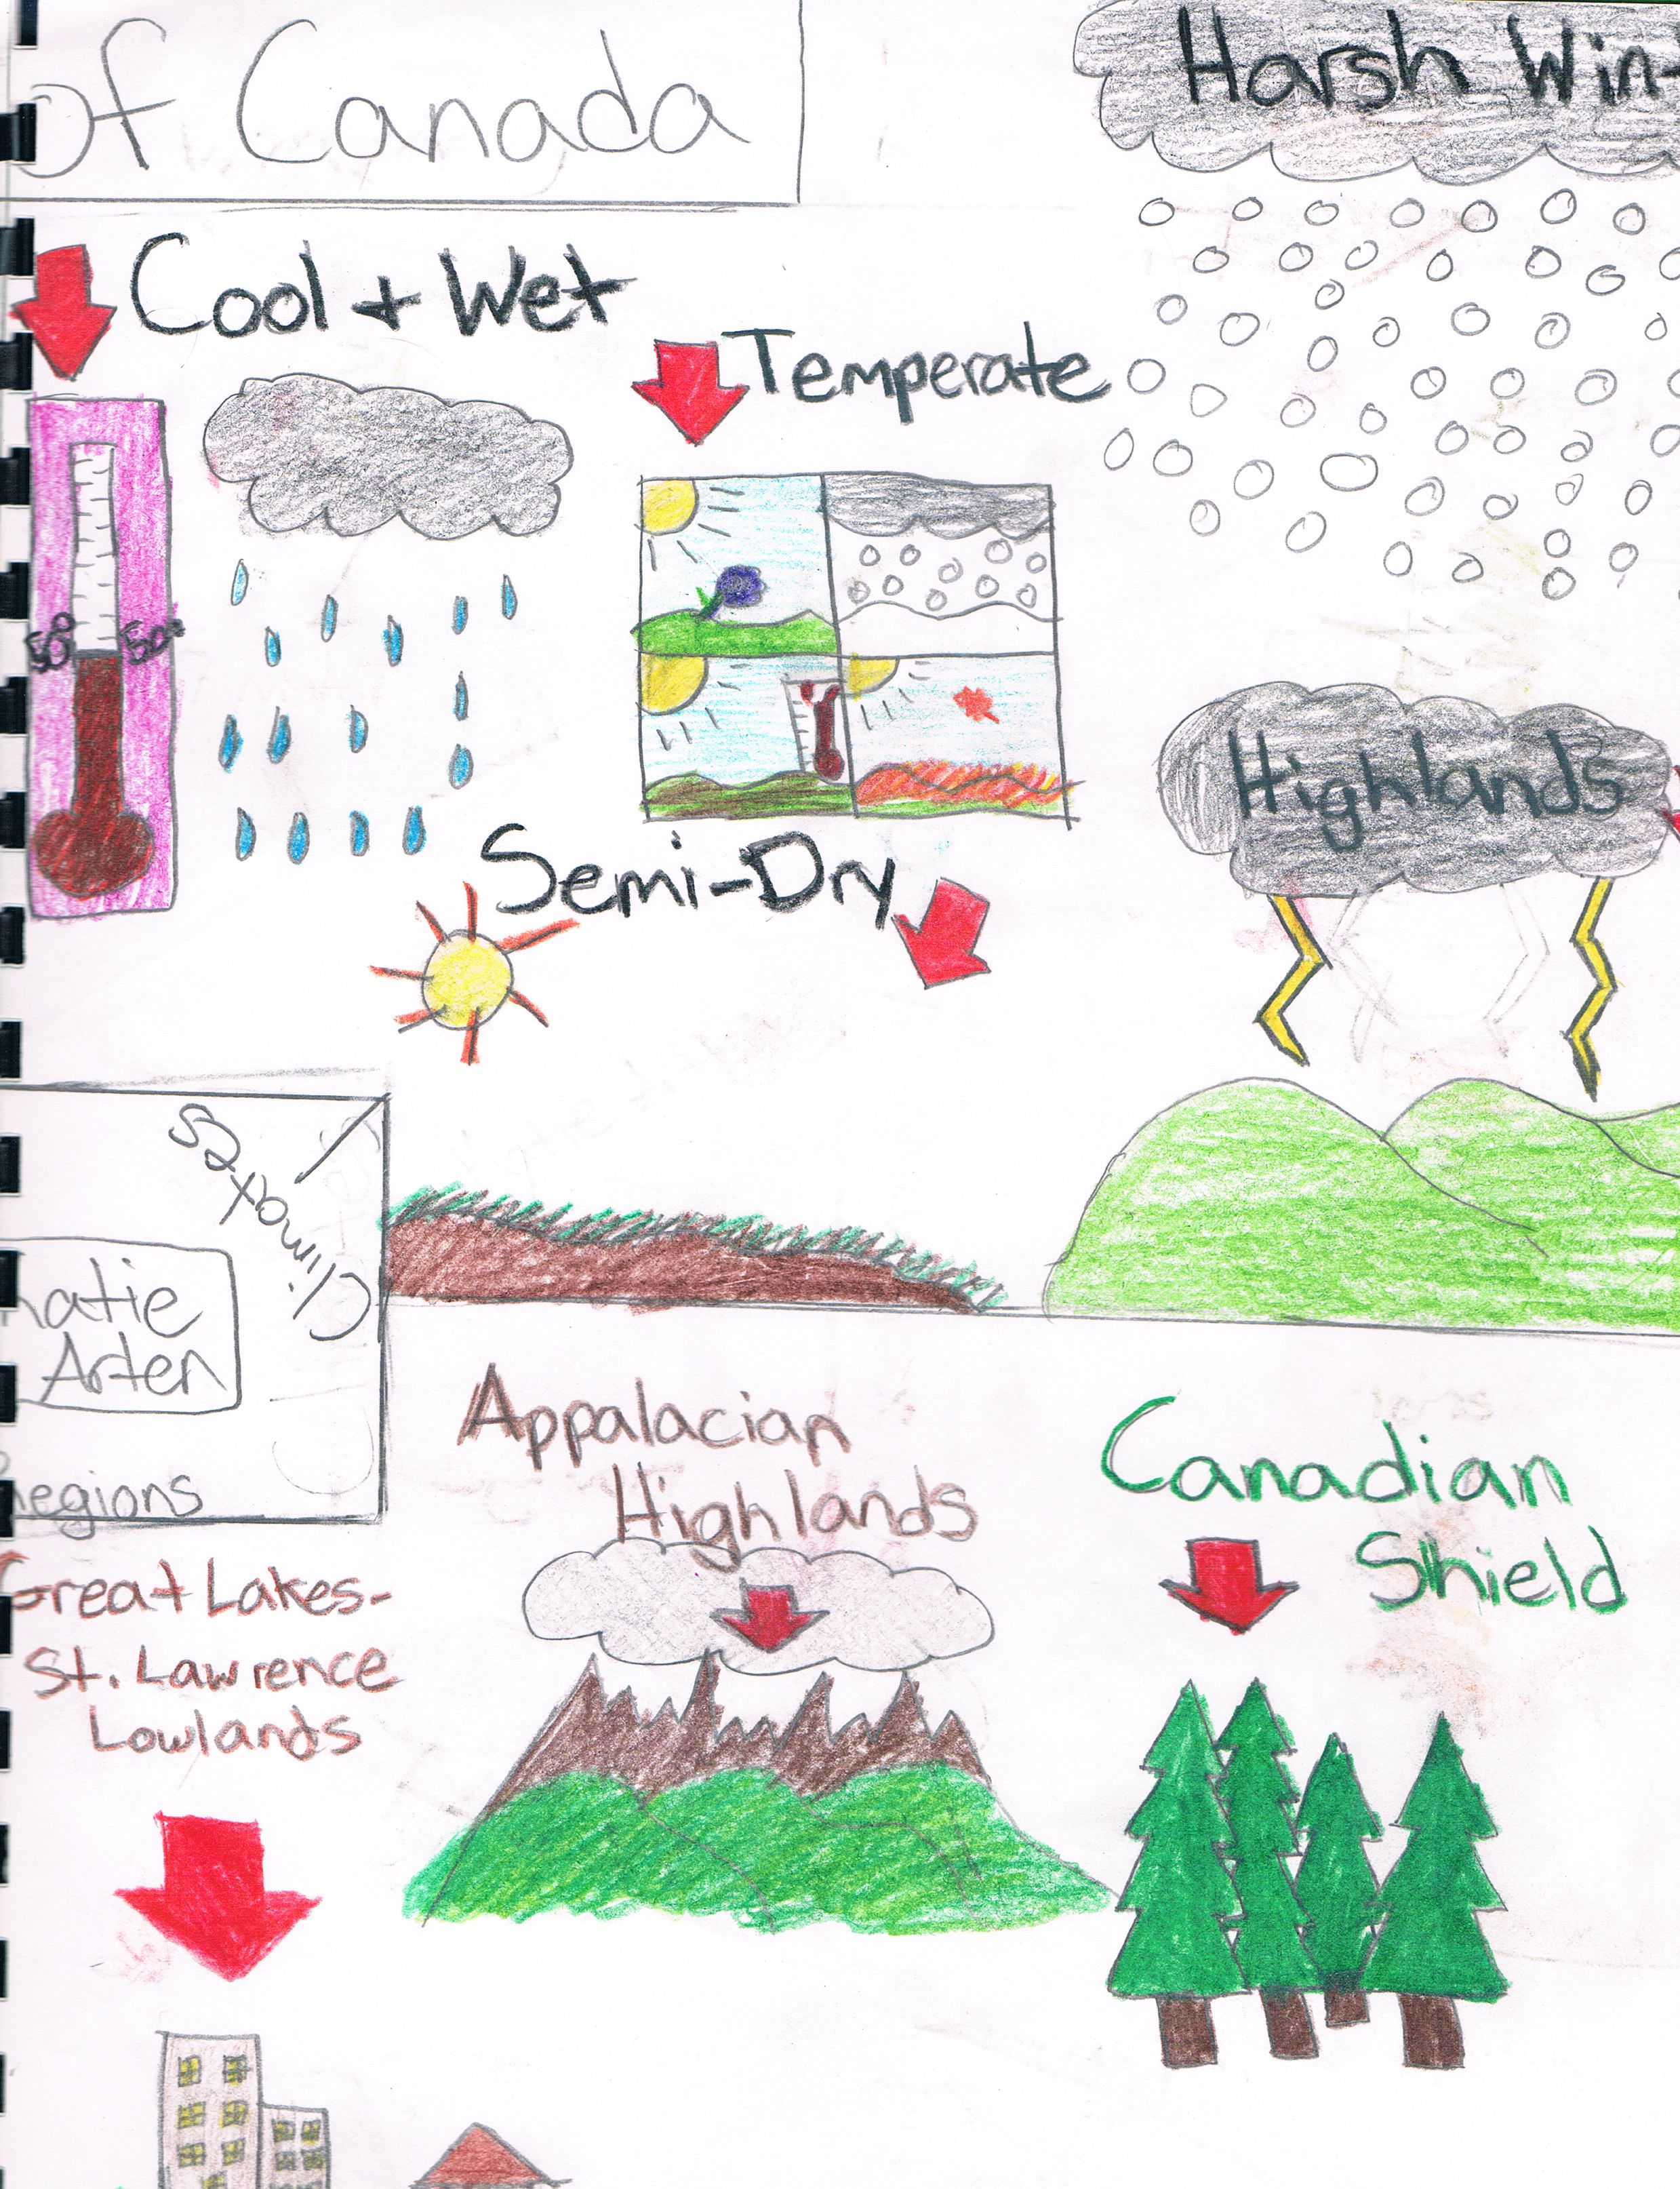 of Canada
Harsh Win
Cool + Wet
Temperate
50° 50°
Semi-Dry
Highlands
Climates
Katie
Arten
Regions
Appalacian
Highlands
Canadian
Shield
Great Lakes-
St. Lawrence
Lowlands